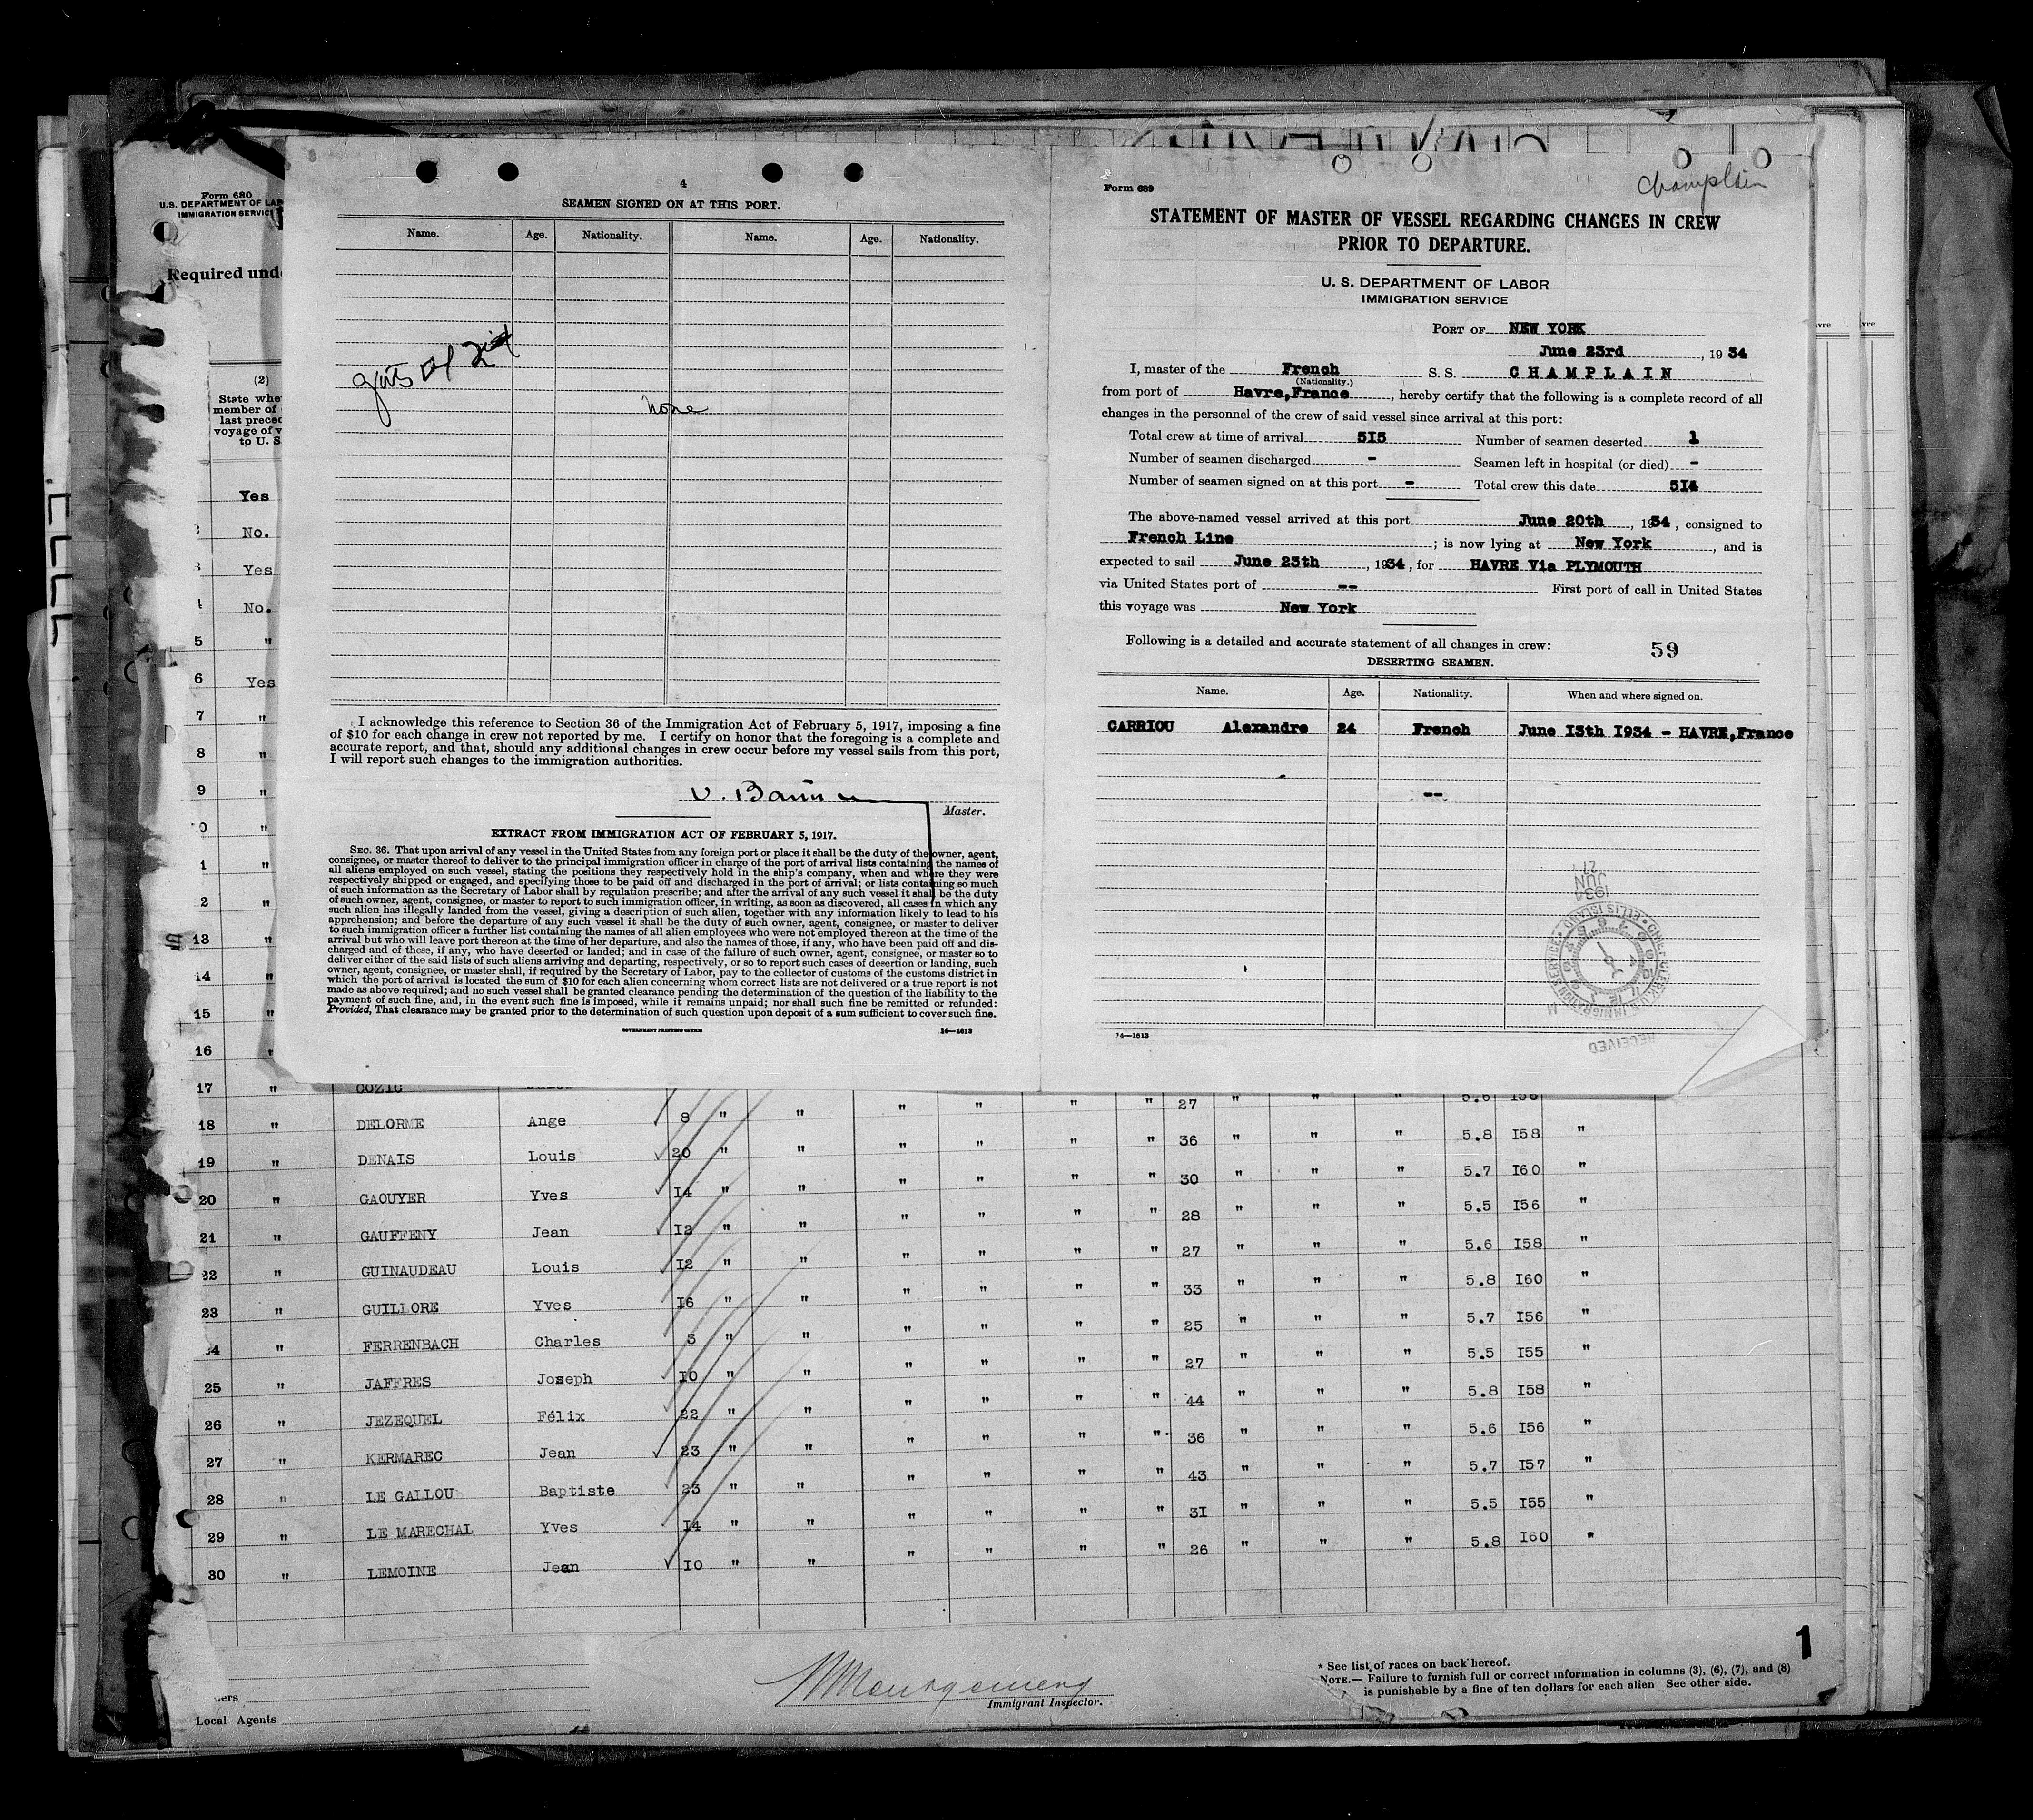 Form 680
U. S. DEPARTMENT OF LAB
IMMIGRATION SERVICE
Required unde
(2)
State whe
member of
last preced
voyage of v
to U. S.
Yes
No.
Yes
No.
5 "
6 Yes
7 "
8 "
9 "
"
1 "
2 "
13 "
14 "
15 "
16 "
4
SEAMEN SIGNED ON AT THIS PORT.
Name. Age. Nationality. Name. Age. Nationality.
none
I acknowledge this reference to Section 36 of the Immigration Act of February 5, 1917, imposing a fine
of $10 for each change in crew not reported by me. I certify on honor that the foregoing is a complete and
accurate report, and that, should any additional changes in crew occur before my vessel sails from this port,
I will report such changes to the immigration authorities.
Master.
EXTRACT FROM IMMIGRATION ACT OF FEBRUARY 5, 1917.
SEC. 36. That upon arrival of any vessel in the United States from any foreign port or place it shall be the duty of the owner, agent,
consignee, or master thereof to deliver to the principal immigration officer in charge of the port of arrival lists containing the names of
all aliens employed on such vessel, stating the positions they respectively hold in the ship's company, when and where they were
respectively shipped or engaged, and specifying those to be paid off and discharged in the port of arrival; or lists containing so much
of such information as the Secretary of Labor shall by regulation prescribe; and after the arrival of any such vessel it shall be the duty
of such owner, agent, consignee, or master to report to such immigration officer, in writing, as soon as discovered, all cases in which any
such alien has illegally landed from the vessel, giving a description of such alien, together with any information likely to lead to his
apprehension; and before the departure of any such vessel it shall be the duty of such owner, agent, consignee, or master to deliver
to such immigration officer a further list containing the names of all alien employees who were not employed thereon at the time of the
arrival but who will leave port thereon at the time of her departure, and also the names of those, if any, who have been paid off and dis-
charged and of those, if any, who have deserted or landed; and in case of the failure of such owner, agent, consignee, or master so to
deliver either of the said lists of such aliens arriving and departing, respectively, or so to report such cases of desertion or landing, such
owner, agent, consignee, or master shall, if required by the Secretary of Labor, pay to the collector of customs of the customs district in
which the port of arrival is located the sum of $10 for each alien concerning whom correct lists are not delivered or a true report is not
made as above required; and no such vessel shall be granted clearance pending the determination of the question of the liability to the
payment of such fine, and, in the event such fine is imposed, while it remains unpaid; nor shall such fine be remitted or refunded:
Provided, That clearance may be granted prior to the determination of such question upon deposit of a sum sufficient to cover such fine.
GOVERNMENT PRINTING OFFICE 14—1613
Champlain
Form 689
STATEMENT OF MASTER OF VESSEL REGARDING CHANGES IN CREW
PRIOR TO DEPARTURE.
U. S. DEPARTMENT OF LABOR
IMMIGRATION SERVICE
PORT OF NEW YORK
June 23rd, 1934
I, master of the French S. S. CHAMPLAIN
(Nationality.)
from port of Havre,France, hereby certify that the following is a complete record of all
changes in the personnel of the crew of said vessel since arrival at this port:
Total crew at time of arrival 515 Number of seamen deserted 1
Number of seamen discharged - Seamen left in hospital (or died) -
Number of seamen signed on at this port - Total crew this date 514
The above-named vessel arrived at this port June 20th, 1934, consigned to
French Line; is now lying at New York, and is
expected to sail June 23th, 1934, for HAVRE Via PLYMOUTH
via United States port of -- First port of call in United States
this voyage was New York
Following is a detailed and accurate statement of all changes in crew: 59
DESERTING SEAMEN.
Name. Age. Nationality. When and where signed on.
CARRIOU Alexandre 24 French June 13th 1934 - HAVRE,France
--
1934
JUN
27
ELLIS ISLAND
RECEIVED
14—1613
17 " COZIC
18 " DELORME Ange 8 " " " " " " 27 " " " 5.6 158
19 " DENAIS Louis 20 " " " " " " 36 " " " 5.8 158 "
20 " GAOUYER Yves 14 " " " " " " 30 " " " 5.7 160 "
21 " GAUFFENY Jean 12 " " " " " " 28 " " " 5.5 156 "
22 " GUINAUDEAU Louis 12 " " " " " " 27 " " " 5.6 158 "
23 " GUILLORE Yves 16 " " " " " " 33 " " " 5.8 160 "
24 " FERRENBACH Charles 3 " " " " " " 25 " " " 5.7 156 "
25 " JAFFRES Joseph 10 " " " " " " 27 " " " 5.5 155 "
26 " JEZEQUEL Félix 22 " " " " " 44 " " " 5.8 158 "
27 " KERMAREC Jean 23 " " " " " " 36 " " " 5.6 156 "
28 " LE GALLOU Baptiste 23 " " " " " " 43 " " " 5.7 157 "
29 " LE MARECHAL Yves 14 " " " " " " 31 " " " 5.5 155 "
30 " LEMOINE Jean 10 " " " " " " 26 " " " 5.8 160 "
1
Montgomery
Immigrant Inspector.
Local Agents
* See list of races on back hereof.
NOTE.— Failure to furnish full or correct information in columns (3), (6), (7), and (8)
is punishable by a fine of ten dollars for each alien See other side.